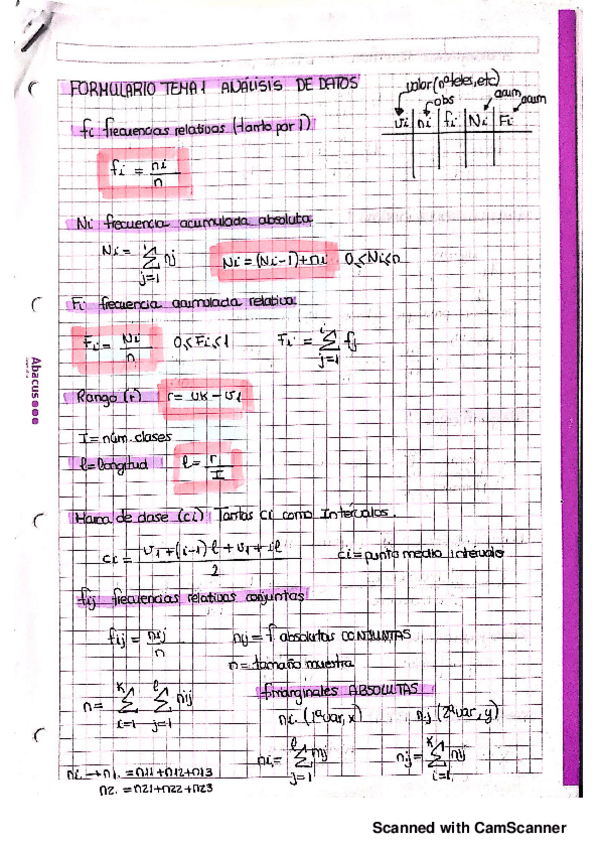 FORMULARIO TEMA 1 ANÁLISIS DE DATOS
valor (nº teles, etc)
obs
acum
acum
vi | ni | fi | Ni | Fi
fi frecuencias relativas (tanto por 1)
fi = ni/n
Ni frecuencia acumulada absoluta
Ni = Σ_{j=1}^{i} nj
Ni = (Ni-1) + ni 0 ≤ Ni ≤ n
Fi frecuencia acumulada relativa
Fi = Ni/n 0 ≤ Fi ≤ 1 Fi = Σ_{j=1}^{i} fj
Rango (r) r = vk - v1
I = núm. clases
l = longitud l = r/I
Marca de clase (ci) Tantas ci como Intervalos.
ci = (v1 + (i-1) l + v1 + il)/2 ci = punto medio intervalo
fij frecuencias relativas conjuntas
fij = nij/n nij = f. absolutas CONJUNTAS
n = tamaño muestra
n = Σ_{i=1}^{k} Σ_{j=1}^{l} nij
f. marginales ABSOLUTAS
ni. (1ª var, x) n.j (2ª var, y)
ni. = Σ_{j=1}^{l} nij n.j = Σ_{i=1}^{k} nij
ni. → n1. = n11 + n12 + n13
n2. = n21 + n22 + n23
Abacus
Scanned with CamScanner